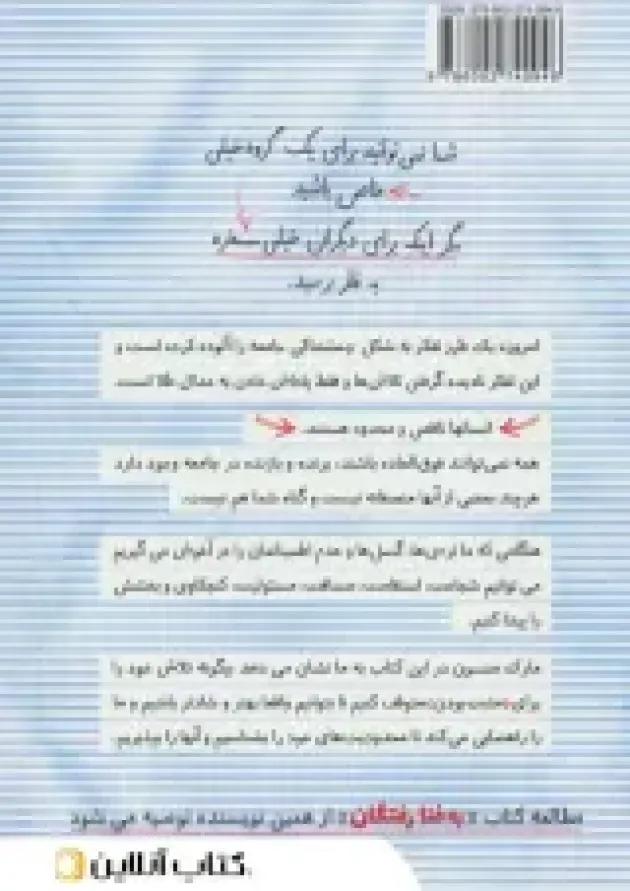 شما نمی‌توانید برای یک گروه خیلی
خاص باشید
مگر اینکه برای دیگران خیلی مسخره
به نظر برسید.
امروزه یک طرز تفکر به شکل وحشتناکی جامعه را آلوده کرده است و
این تفکر نادیده گرفتن تلاش‌ها و فقط پاداش دادن به مدال طلا است.
انسانها ناقص و محدود هستند.
همه نمی‌توانند فوق‌العاده باشند، برنده و بازنده در جامعه وجود دارد
هرچند بعضی از آنها منصفانه نیست و گناه شما هم نیست.
هنگامی که ما ترس‌ها، گسل‌ها و عدم اطمینانمان را در آغوش می گیریم
می توانیم شجاعت، استقامت، صداقت، مسئولیت، کنجکاوی و بخشش
را پیدا کنیم.
مارک منسون در این کتاب به ما نشان می دهد چگونه تلاش خود را
برای مثبت بودن متوقف کنیم تا بتوانیم واقعا بهتر و شادتر باشیم و ما
را راهنمایی می‌کند تا محدودیت‌های خود را بشناسیم و آنها را بپذیریم.
مطالعه کتاب «به فنا رفتگان» از همین نویسنده توصیه می شود
کتاب آنلاین